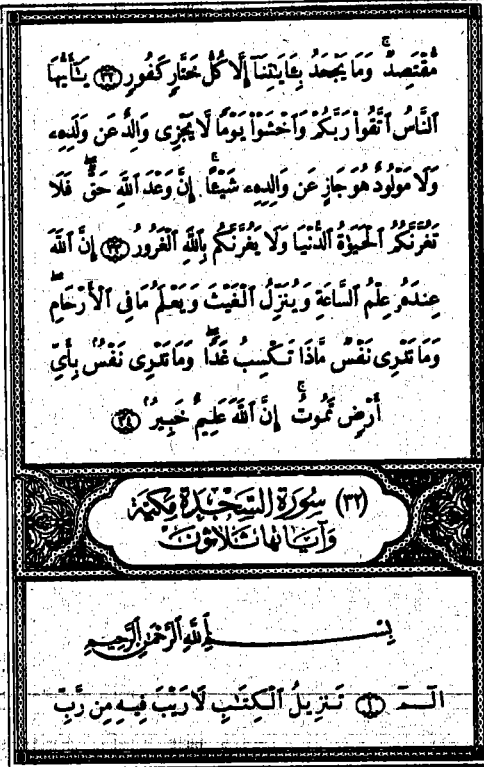 مُّقْتَصِدٌۚ وَمَا يَجْحَدُ بِـَٔايَٰتِنَآ إِلَّا كُلُّ خَتَّارٍ كَفُورٍ ٣٢ يَٰٓأَيُّهَا
ٱلنَّاسُ ٱتَّقُوا۟ رَبَّكُمْ وَٱخْشَوْا۟ يَوْمًا لَّا يَجْزِى وَالِدٌ عَن وَلَدِهِۦ
وَلَا مَوْلُودٌ هُوَ جَازٍ عَن وَالِدِهِۦ شَيْـًٔاۚ إِنَّ وَعْدَ ٱللَّهِ حَقٌّۖ فَلَا
تَغُرَّنَّكُمُ ٱلْحَيَوٰةُ ٱلدُّنْيَا وَلَا يَغُرَّنَّكُم بِٱللَّهِ ٱلْغَرُورُ ٣٣ إِنَّ ٱللَّهَ
عِندَهُۥ عِلْمُ ٱلسَّاعَةِ وَيُنَزِّلُ ٱلْغَيْثَ وَيَعْلَمُ مَا فِى ٱلْأَرْحَامِۖ
وَمَا تَدْرِى نَفْسٌ مَّاذَا تَكْسِبُ غَدًاۖ وَمَا تَدْرِى نَفْسٌۢ بِأَىِّ
أَرْضٍ تَمُوتُۚ إِنَّ ٱللَّهَ عَلِيمٌ خَبِيرٌۢ ٣٤
(٣٢) سورة السجدة مكية
وآياتها ثلاثون
بِسْمِ ٱللَّهِ ٱلرَّحْمَٰنِ ٱلرَّحِيمِ
الٓمٓ ١ تَنزِيلُ ٱلْكِتَٰبِ لَا رَيْبَ فِيهِ مِن رَّبِّ